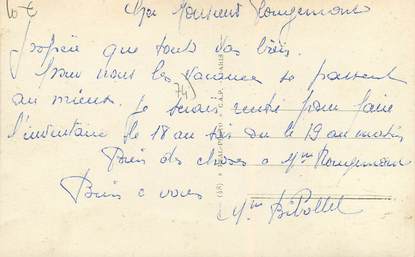 10 €
Cher Monsieur Rougemont
J'espère que tout va bien.
Pour nous les vacances se passent
au mieux. Je serais rentré pour faire
l'inventaire le 18 au soir ou le 19 au matin
Bien des choses a Mme Rougemont
Bien a vous
74